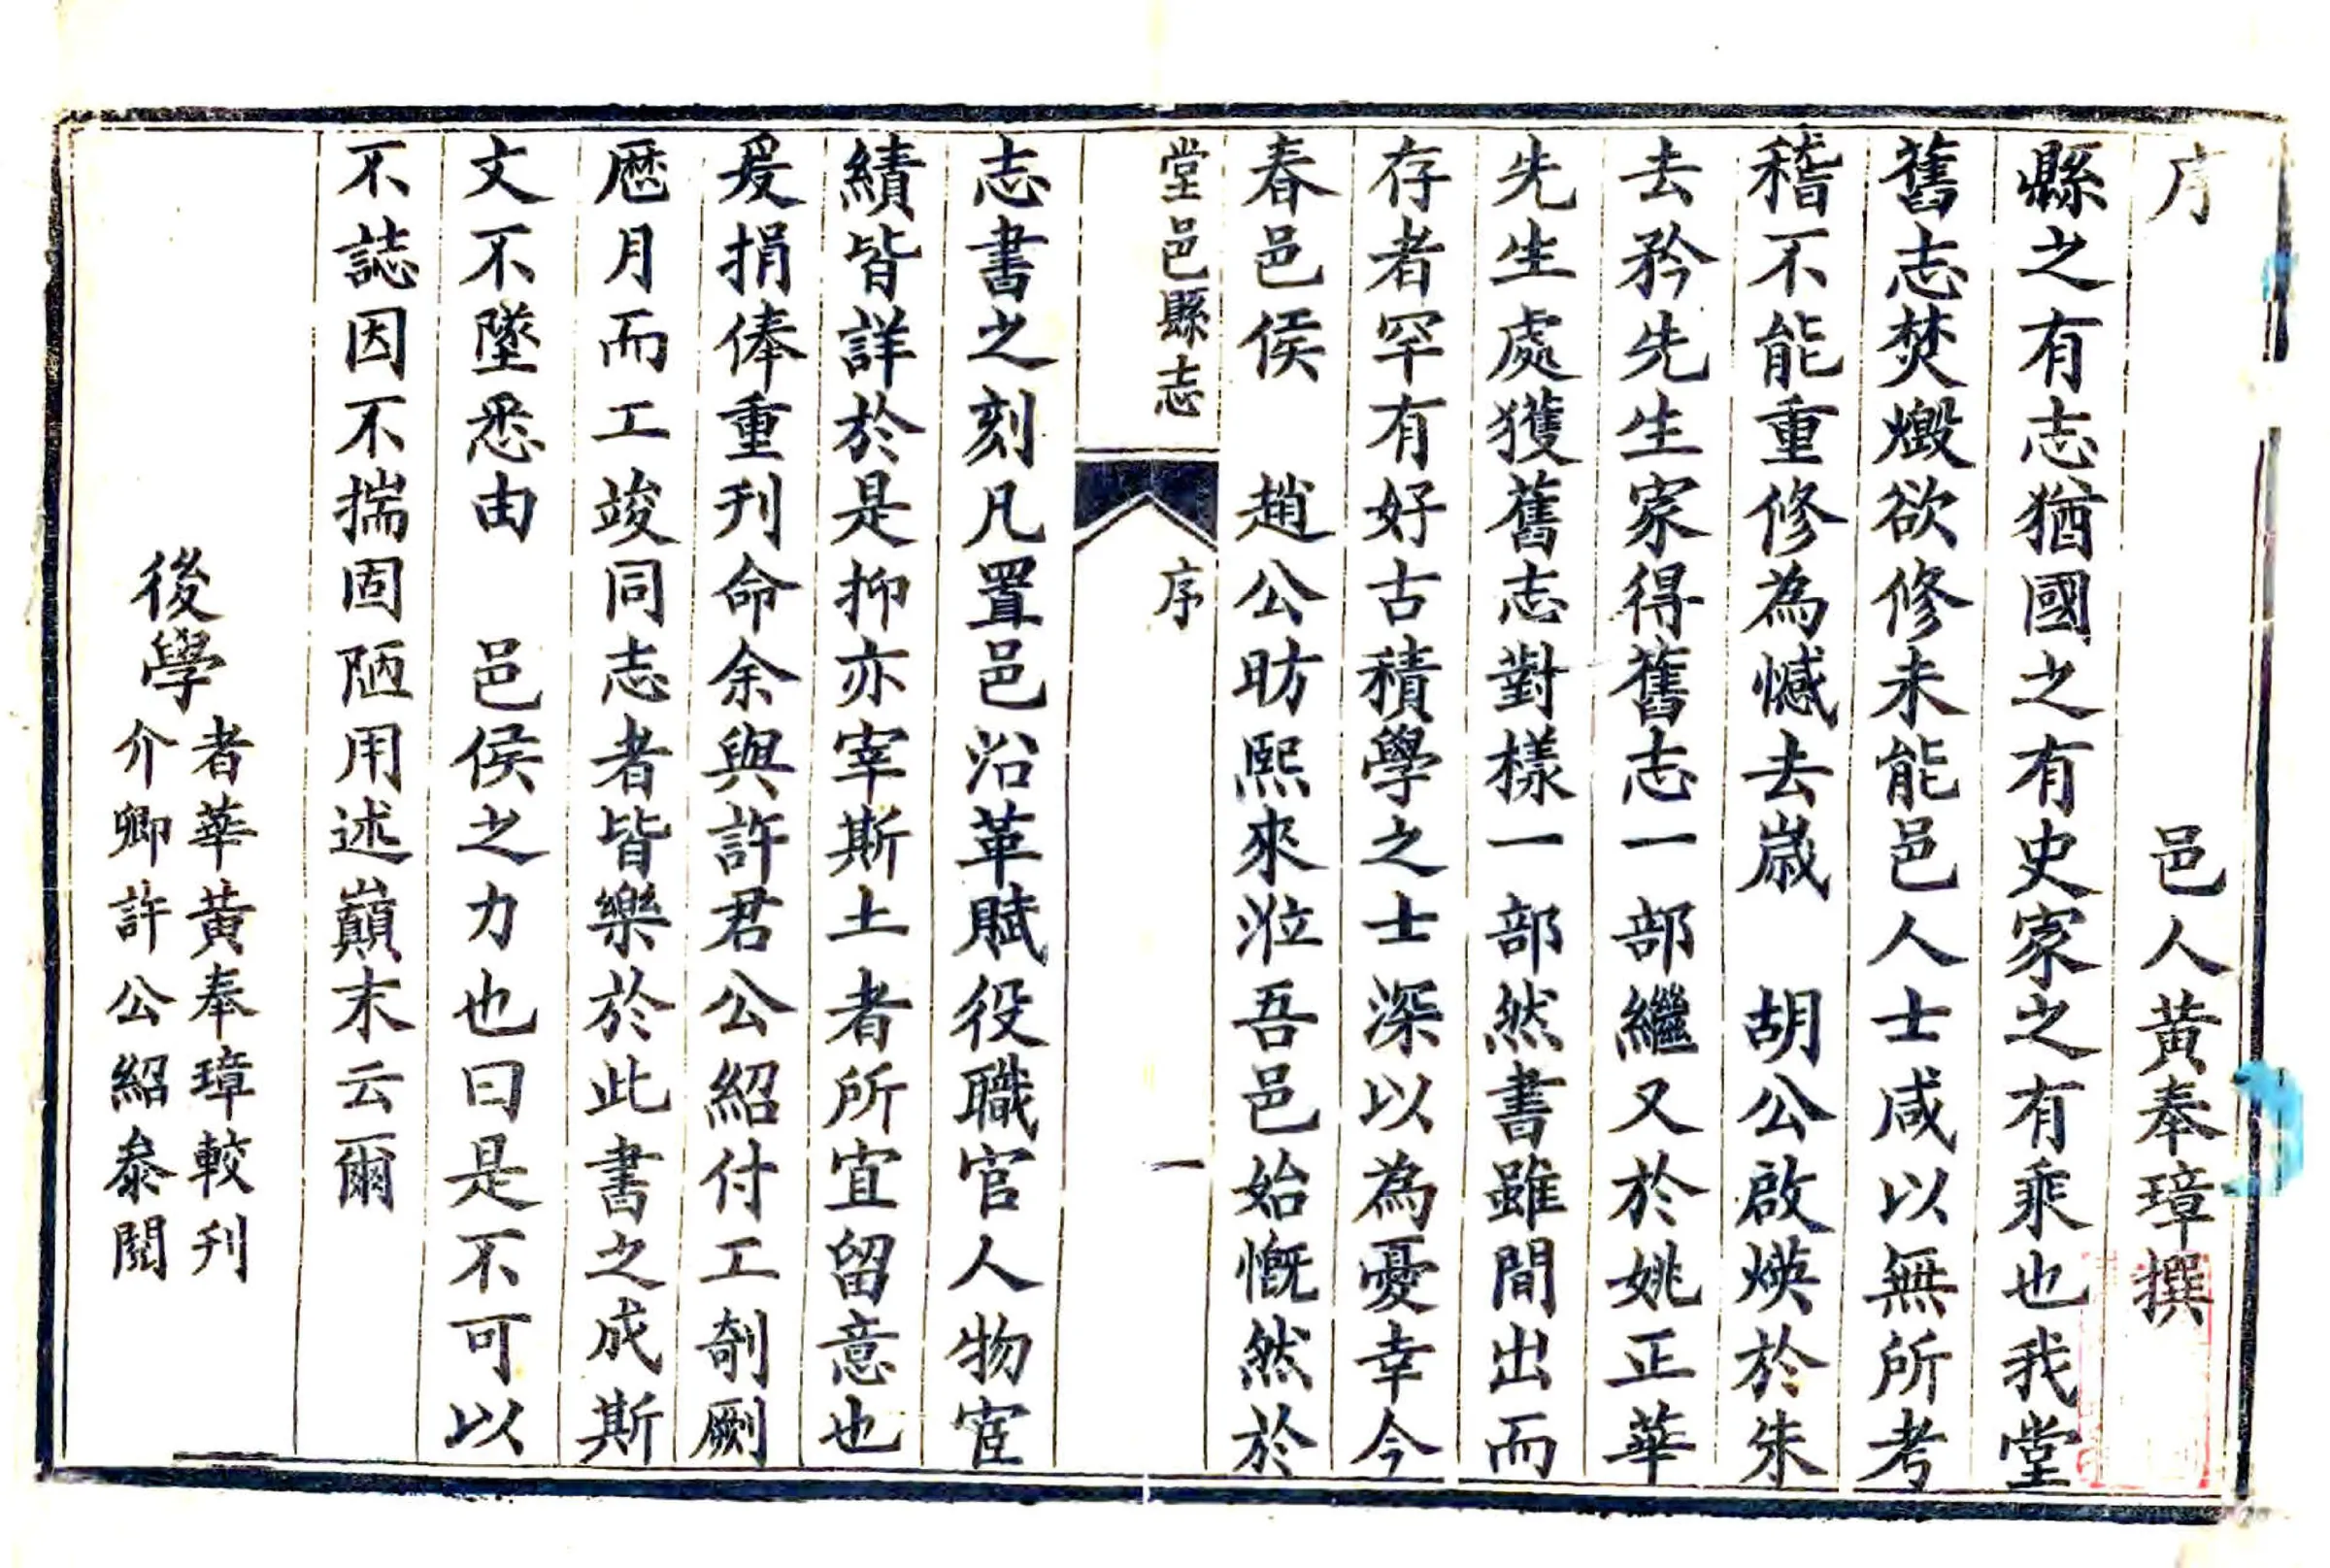 序　邑人黃奉璋撰
縣之有志猶國之有史家之有乘也我堂
舊志焚燬欲修未能邑人士咸以無所考
稽不能重修為憾去歲　胡公啟煐於朱
去矜先生家得舊志一部繼又於姚正華
先生處獲舊志對樣一部然書雖間出而
存者罕有好古積學之士深以為憂幸今
春邑侯　趙公昉熙來涖吾邑始慨然於
堂邑縣志　序　一
志書之刻凡置邑沿革賦役職官人物宦
績皆詳於是抑亦宰斯土者所宜留意也
爰捐俸重刊命余與許君公紹付工剞劂
歷月而工竣同志者皆樂於此書之成斯
文不墜悉由　邑侯之力也曰是不可以
不誌因不揣固陋用述巔末云爾
後學
者華黃奉璋較刊
介卿許公紹叅閱